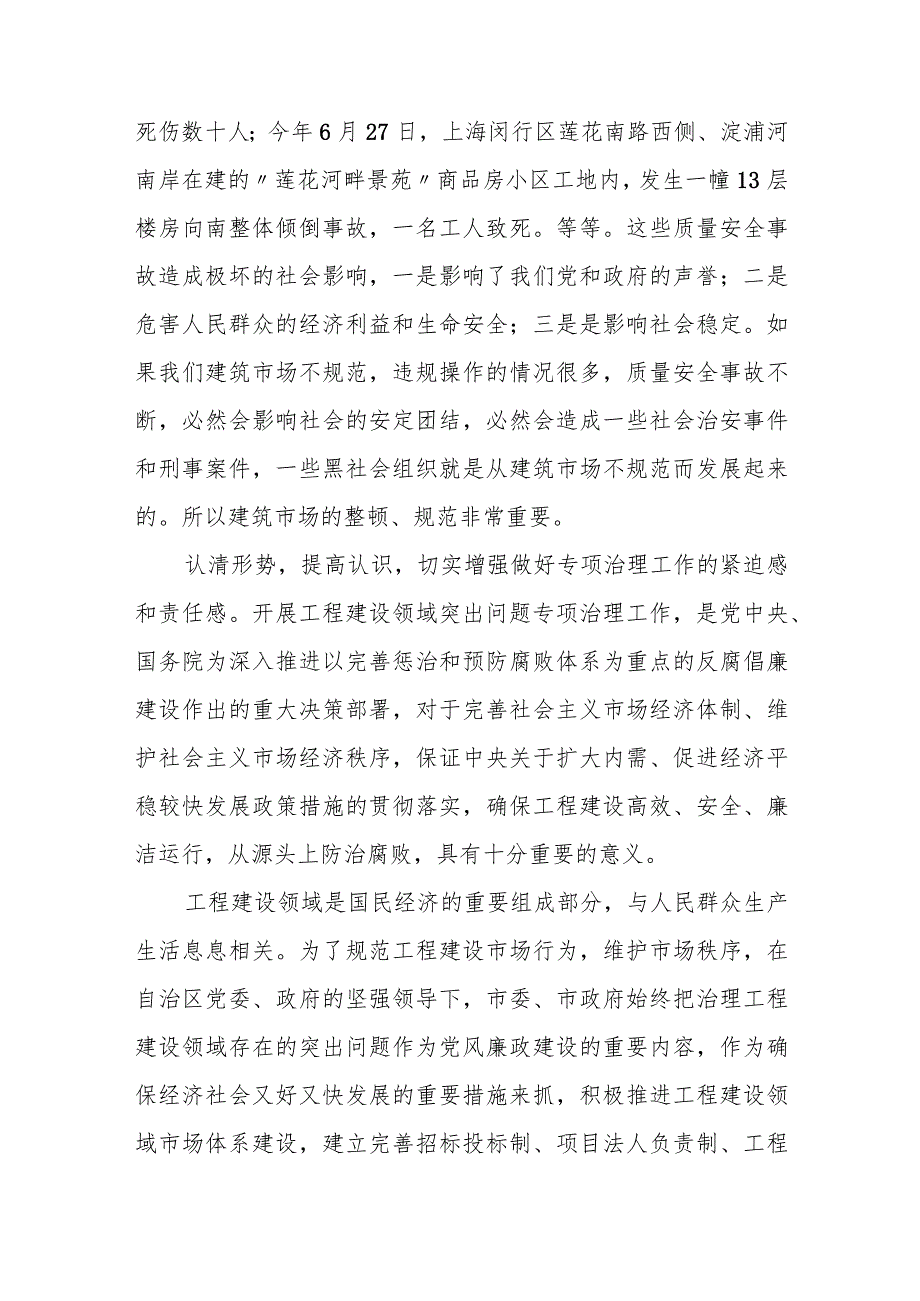 死伤数十人；今年 6 月 27 日，上海闵行区莲花南路西侧、淀浦河
南岸在建的〃莲花河畔景苑〃商品房小区工地内，发生一幢 13 层
楼房向南整体倾倒事故，一名工人致死。等等。这些质量安全事
故造成极坏的社会影响，一是影响了我们党和政府的声誉；二是
危害人民群众的经济利益和生命安全；三是是影响社会稳定。如
果我们建筑市场不规范，违规操作的情况很多，质量安全事故不
断，必然会影响社会的安定团结，必然会造成一些社会治安事件
和刑事案件，一些黑社会组织就是从建筑市场不规范而发展起来
的。所以建筑市场的整顿、规范非常重要。
认清形势，提高认识，切实增强做好专项治理工作的紧迫感
和责任感。开展工程建设领域突出问题专项治理工作，是党中央、
国务院为深入推进以完善惩治和预防腐败体系为重点的反腐倡廉
建设作出的重大决策部署，对于完善社会主义市场经济体制、维
护社会主义市场经济秩序，保证中央关于扩大内需、促进经济平
稳较快发展政策措施的贯彻落实，确保工程建设高效、安全、廉
洁运行，从源头上防治腐败，具有十分重要的意义。
工程建设领域是国民经济的重要组成部分，与人民群众生产
生活息息相关。为了规范工程建设市场行为，维护市场秩序，在
自治区党委、政府的坚强领导下，市委、市政府始终把治理工程
建设领域存在的突出问题作为党风廉政建设的重要内容，作为确
保经济社会又好又快发展的重要措施来抓，积极推进工程建设领
域市场体系建设，建立完善招标投标制、项目法人负责制、工程